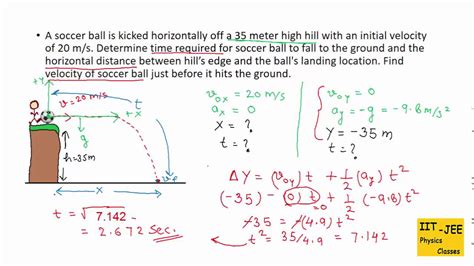 • A soccer ball is kicked horizontally off a 35 meter high hill with an initial velocity
of 20 m/s. Determine time required for soccer ball to fall to the ground and the
horizontal distance between hill's edge and the ball's landing location. Find
velocity of soccer ball just before it hits the ground.
+Y
v=20 m/s
t
+x
g
h=35m
x
v_ox = 20 m/s
a_x = 0
x = ?
t = ?
v_oy = 0
a_y = -g = -9.8 m/s²
Y = -35 m
t = ?
ΔY = (v_oy) t + 1/2 (a_y) t²
(-35) = (0) t + 1/2 (-9.8) t²
=0
-35 = -(4.9) t²
t² = 35/4.9 = 7.142
t = √7.142
= 2.672 Sec.
IIT - JEE
Physics
Classes